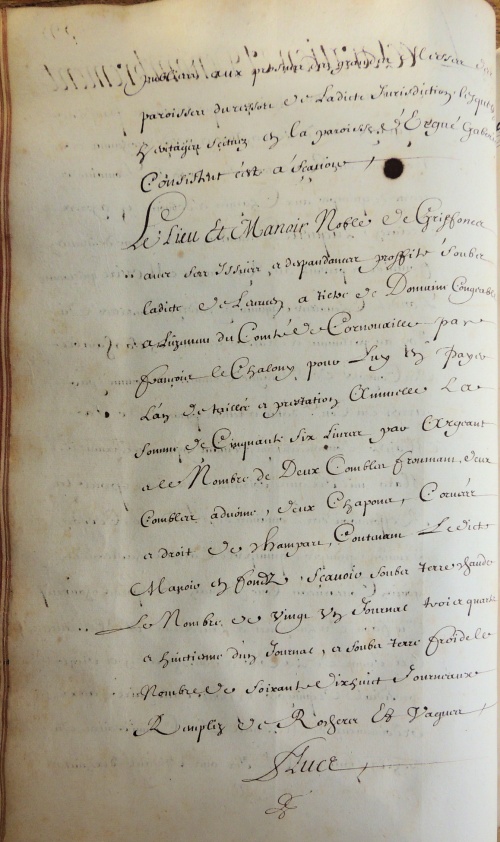 paroisses du ressort de Ladicte Jurisdiction lesquels
heritages scittuez en la paroisse d'Ergué Gaberic
Consistent c'est a scavoir
Le Lieu Et Manoir Noble de Griffones
avec ses Issues et despandances proffité soubz
ladicte de a tiltre de Domaine Congeable
a L'uzement du Comté de Cornouaille par
françois le Chalony pour Luy En Payer
L'an de taille et prestation Annuelle La
somme de Cinquante Six Livres par Argeant
et le Nombre de Deux Combles froument, deux
Combles advoine, deux Chapons, Corvées
et droit de champart, Contenant Ledict
Manoir En fondz, scavoir soubz terre chaude
Le Nombre de Vingt Un Journal trois quartz
et huictiemme d'un Journal, et soubz terre froide le
Nombre de soixante dixhuict Journeaux
Remplis de Rochers Et Vagues